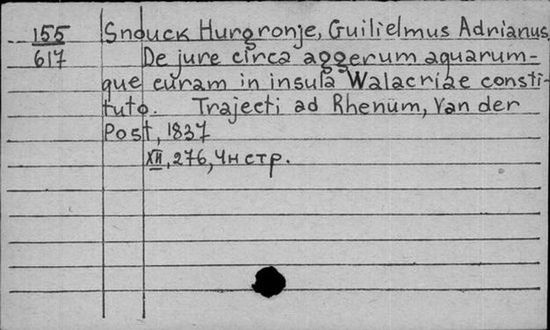 155
617
Snouck Hurgronje, Guilielmus Adrianus,
De jure circa aggerum aquarum-
que curam in insula Walacriae consti-
tuto. Trajecti ad Rhenum, Van der
Post, 1837
XII, 276, 4н стр.